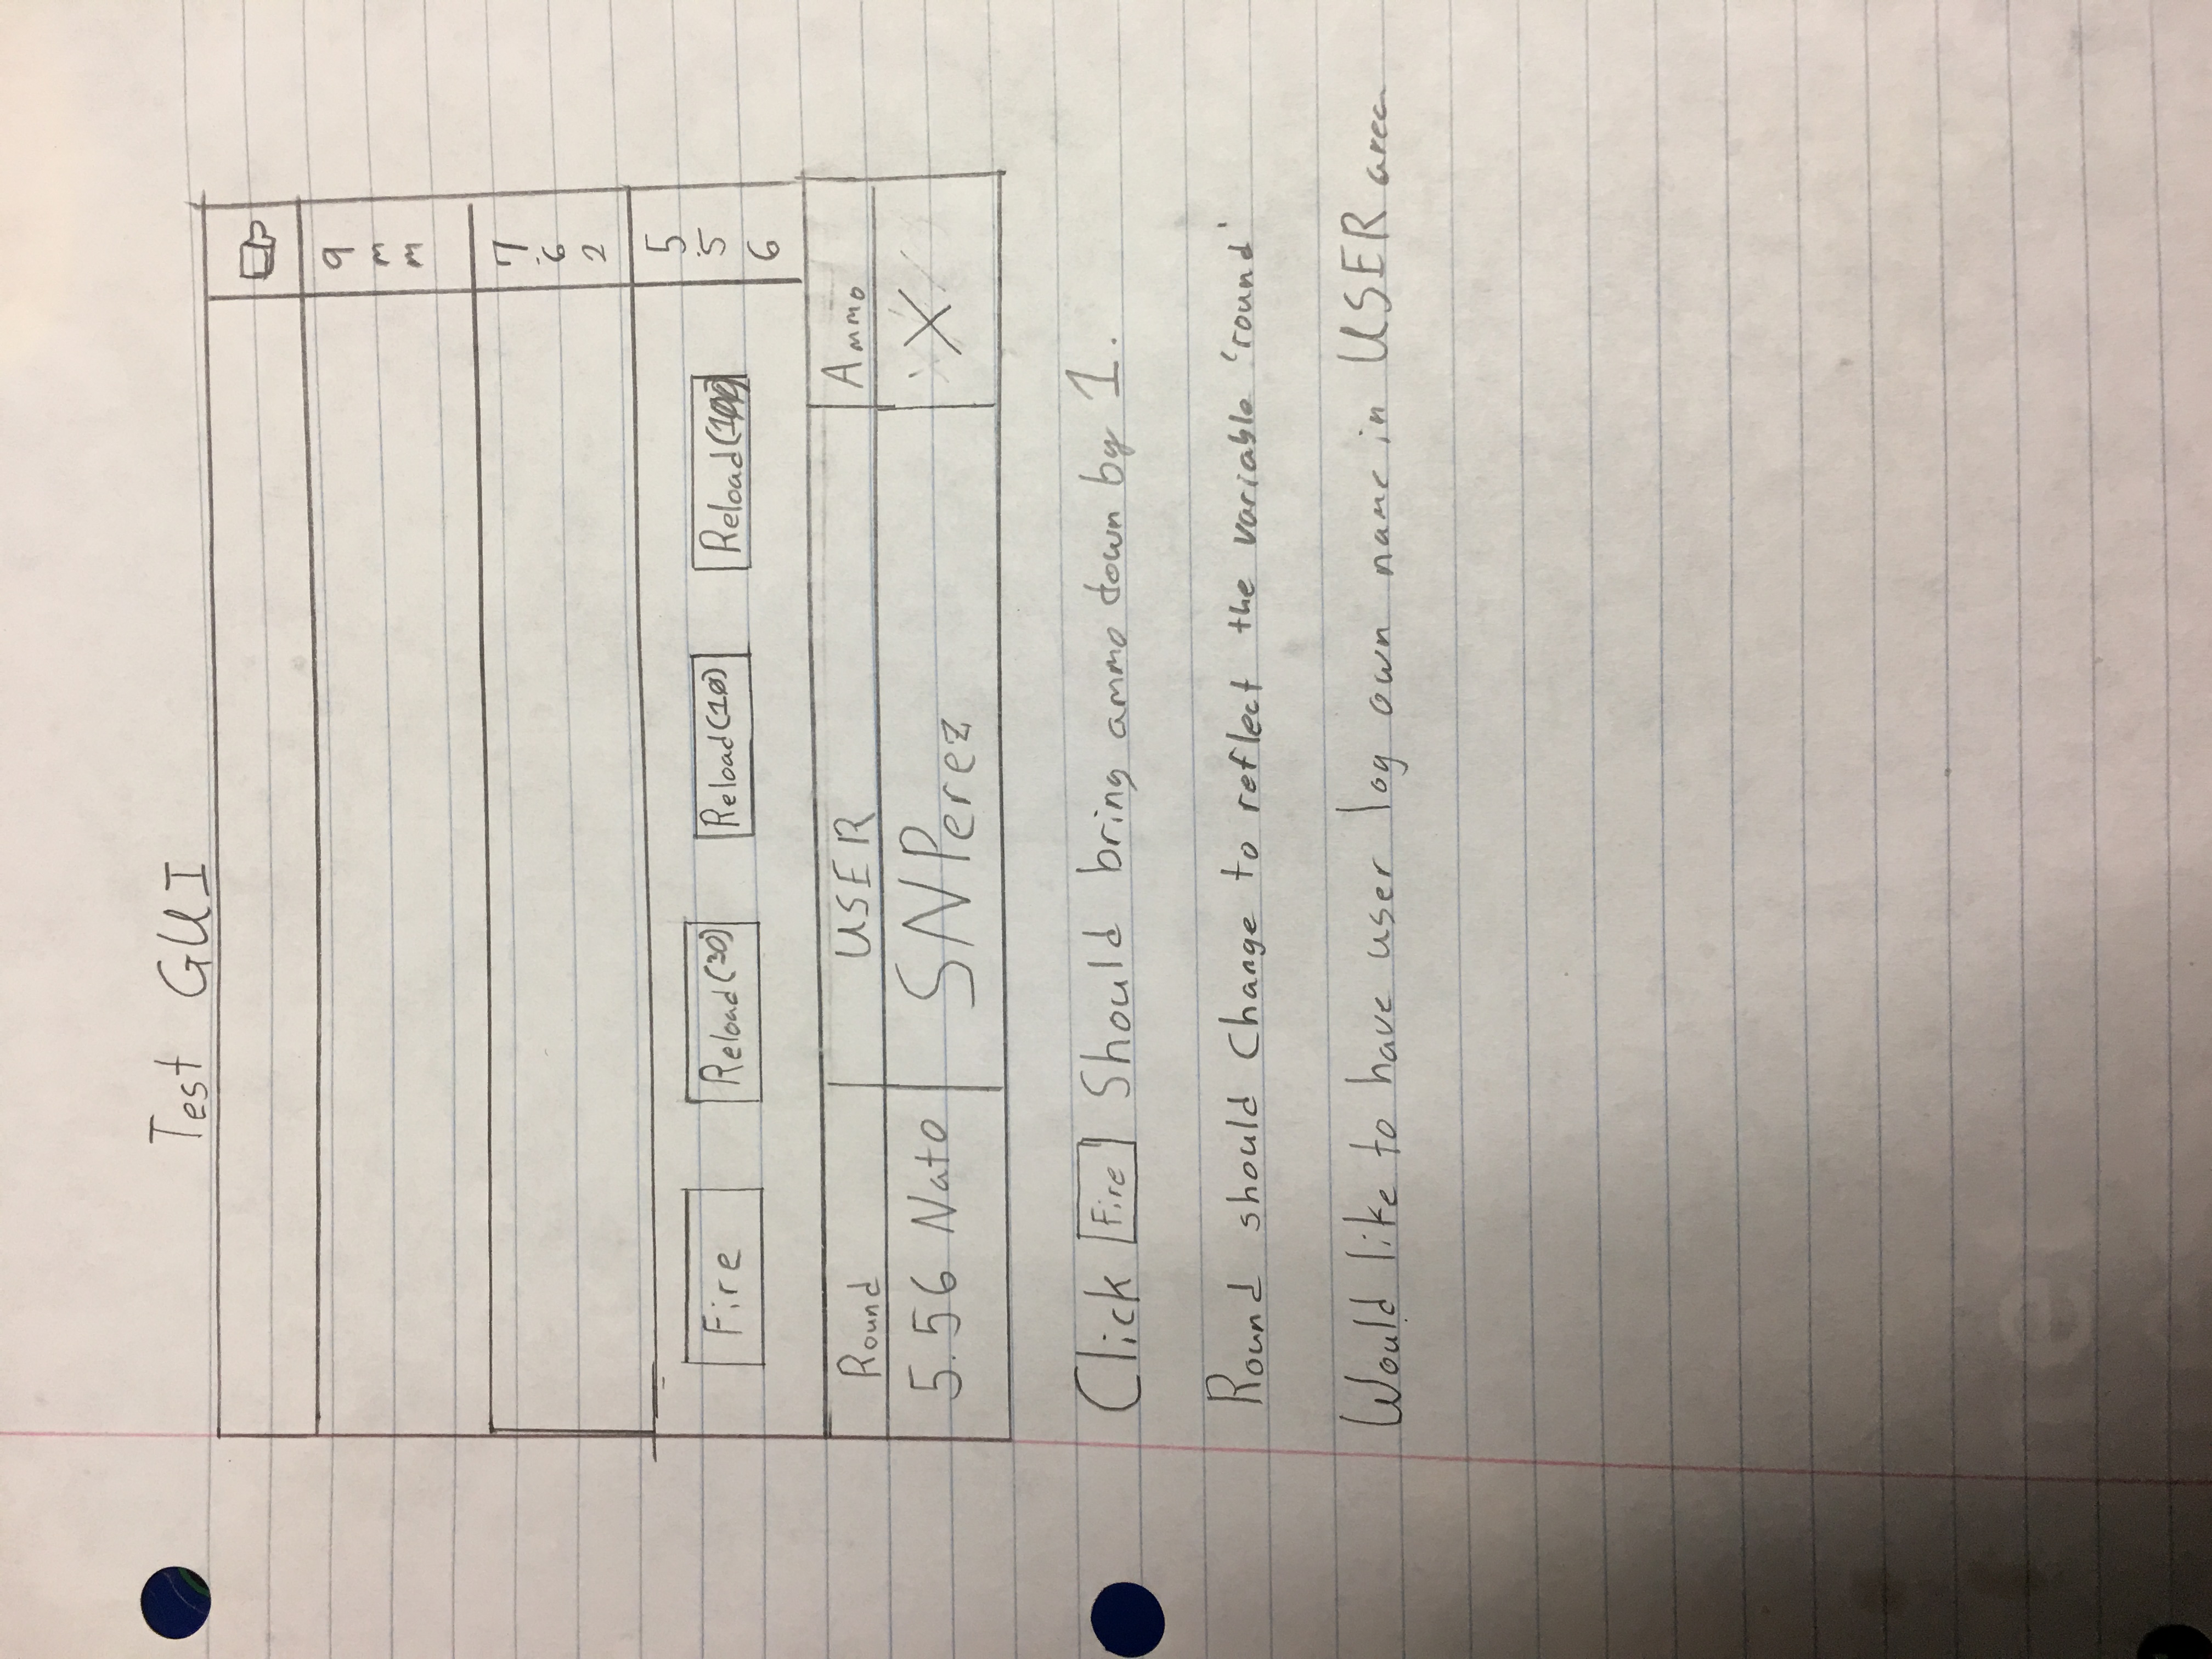 Test GUI
9
m
m
7
.6
2
5
.5
6
Fire Reload(30) Reload(10) Reload(100)
Round USER Ammo
5.56 Nato SNPerez X
Click Fire Should bring ammo down by 1.
Round should Change to reflect the variable 'round'
Would like to have user log own name in USER area